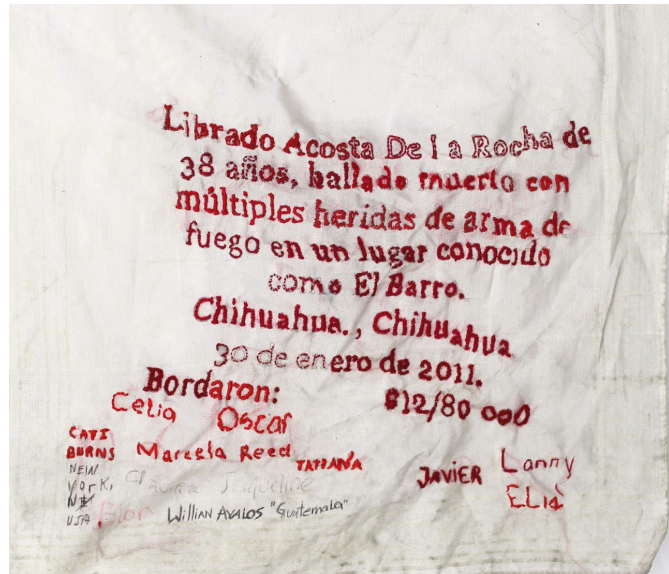 Librado Acosta De la Rocha de
38 años, hallado muerto con
múltiples heridas de arma de
fuego en un lugar conocido
como El Barro.
Chihuahua., Chihuahua
30 de enero de 2011.
Bordaron:
812/80 000
Celia Oscar
CATI
BURNS
Marcela Reed
TATIANA
JAVIER
Lanny
ELIA
NEW
York,
NY
USA
Jaqueline
Willian AVALOS "Guatemala"